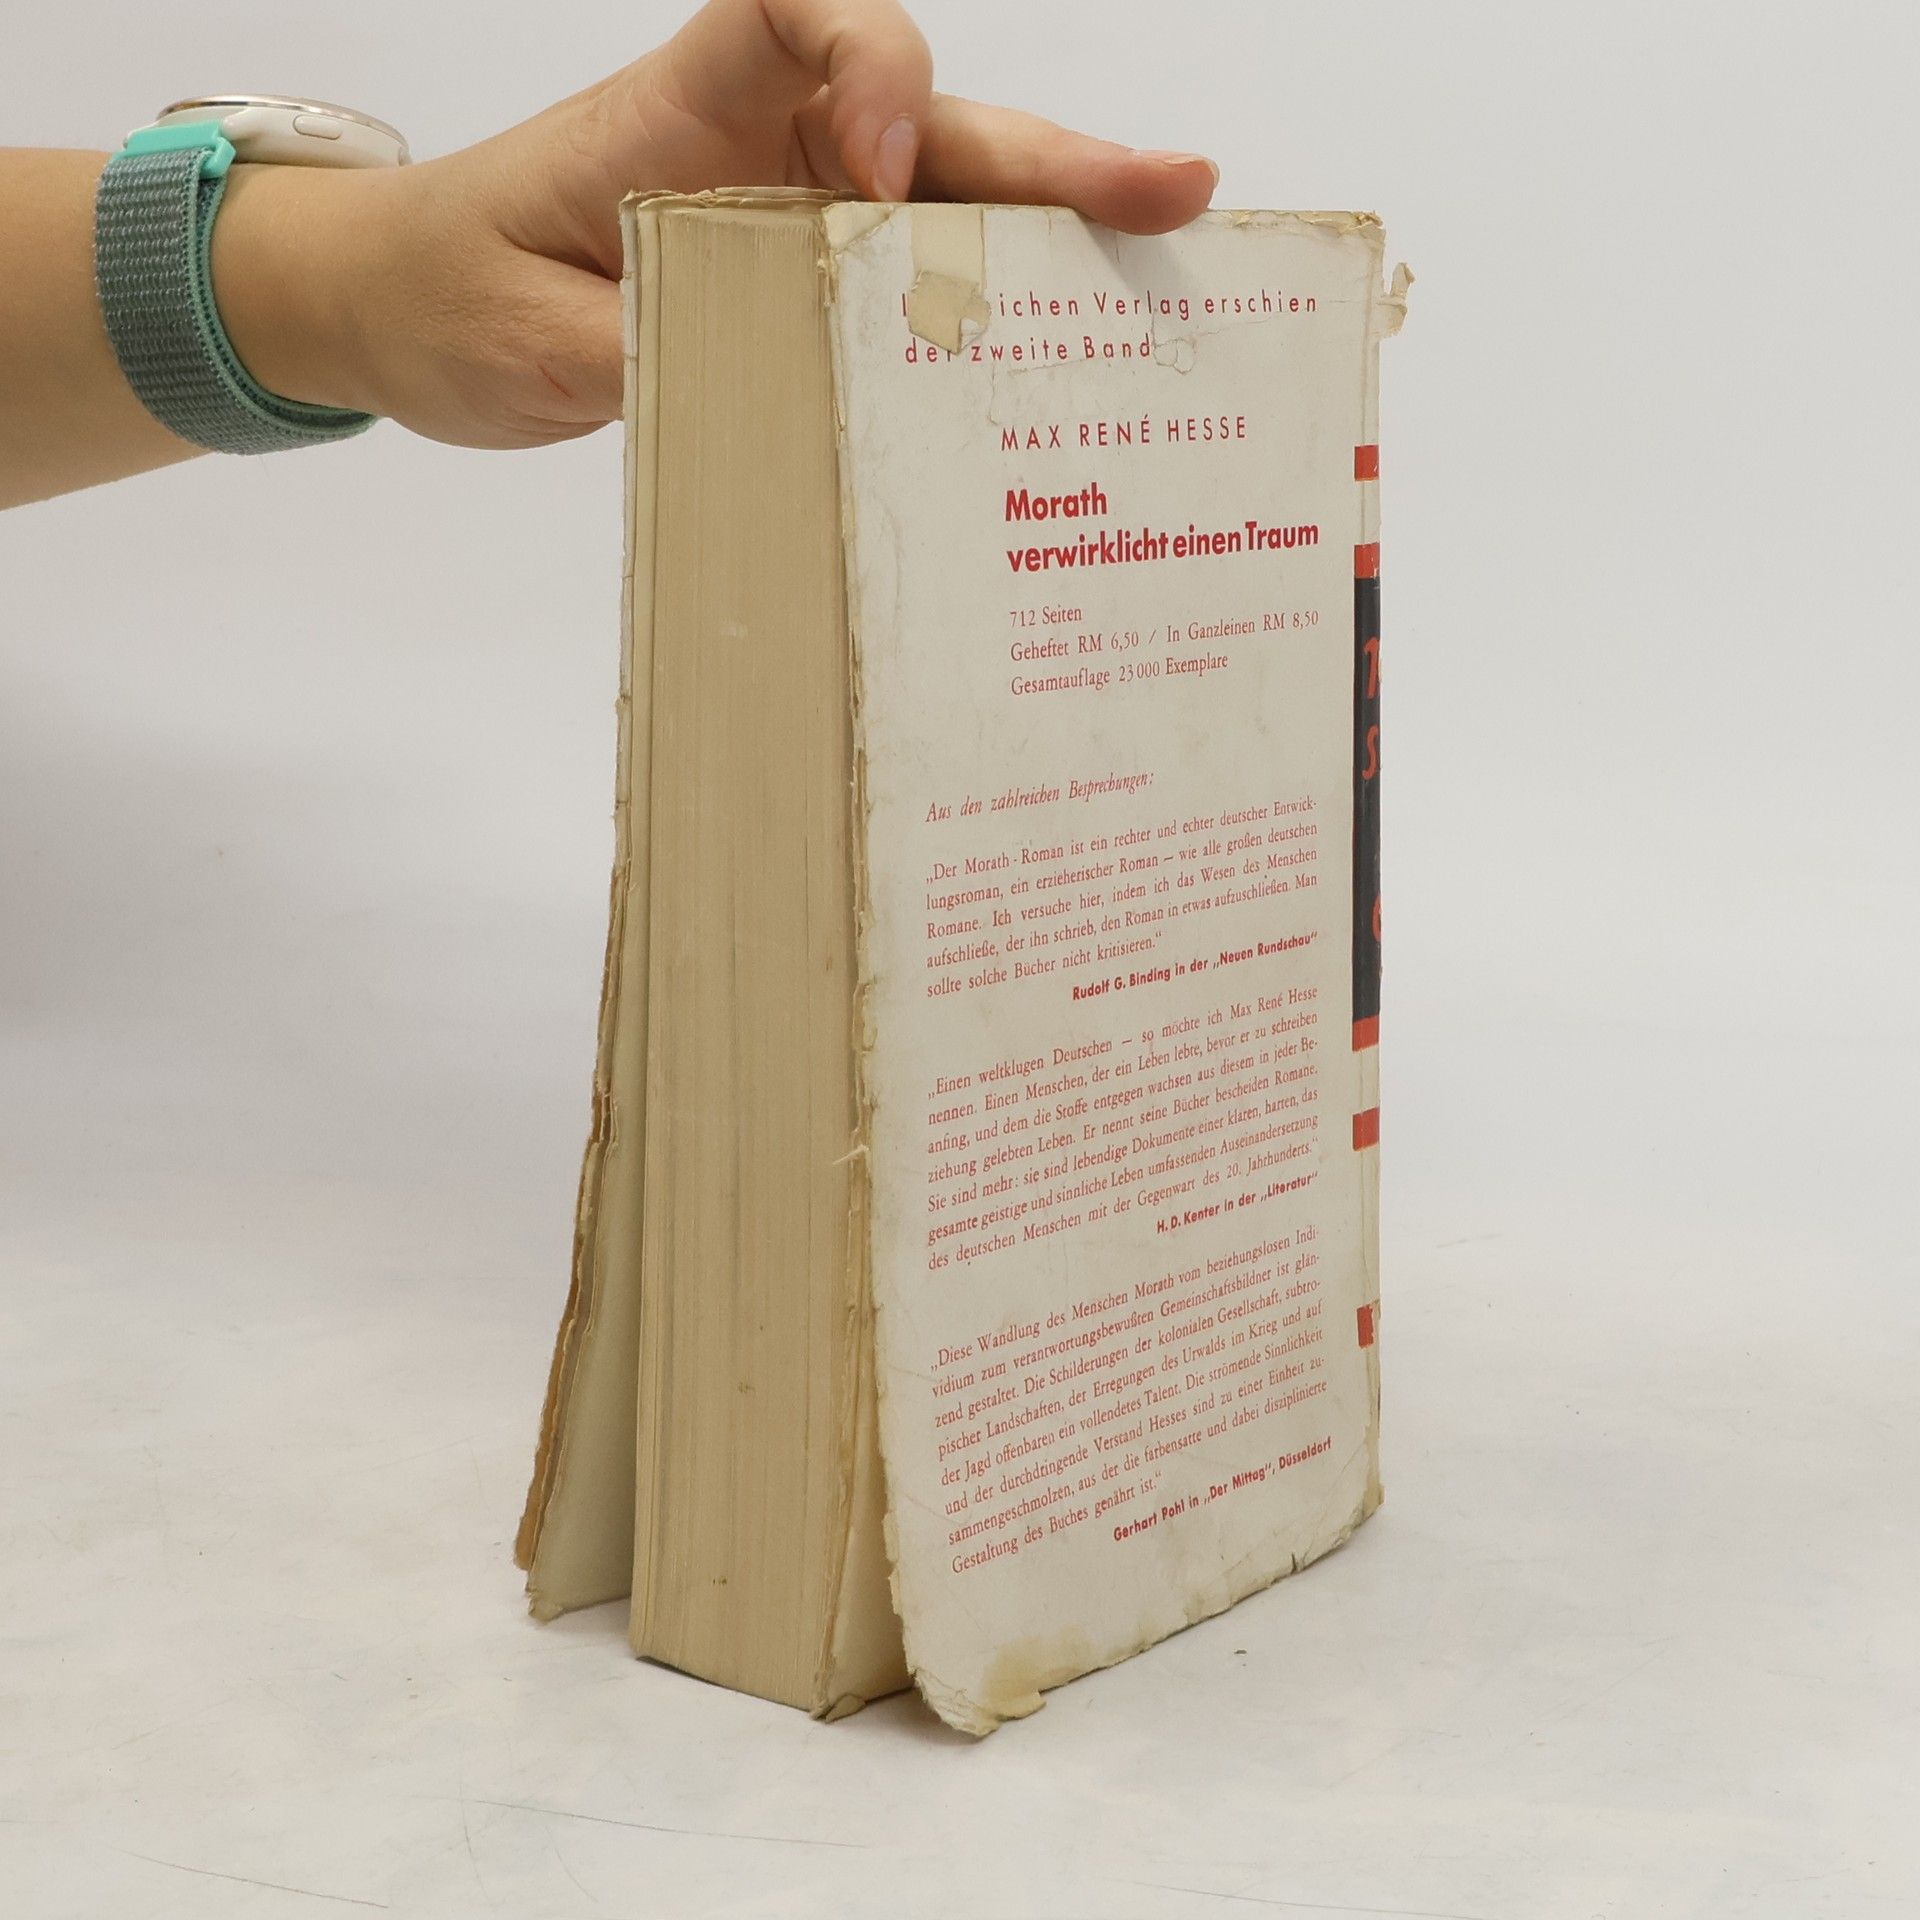 ichen Verlag erschien
der zweite Band
MAX RENÉ HESSE
Morath
verwirklicht einen Traum
712 Seiten
Geheftet RM 6,50 / In Ganzleinen RM 8,50
Gesamtauflage 23000 Exemplare
Aus den zahlreichen Besprechungen:
„Der Morath-Roman ist ein rechter und echter deutscher Entwick-
lungsroman, ein erzieherischer Roman — wie alle großen deutschen
Romane. Ich versuche hier, indem ich das Wesen des Menschen
aufschließe, der ihn schrieb, den Roman in etwas aufzuschließen. Man
sollte solche Bücher nicht kritisieren.“
Rudolf G. Binding in der „Neuen Rundschau“
„Einen weltklugen Deutschen — so möchte ich Max René Hesse
nennen. Einen Menschen, der ein Leben lebte, bevor er zu schreiben
anfing, und dem die Stoffe entgegen wachsen aus diesem in jeder Be-
ziehung gelebten Leben. Er nennt seine Bücher bescheiden Romane.
Sie sind mehr: sie sind lebendige Dokumente einer klaren, harten, das
gesamte geistige und sinnliche Leben umfassenden Auseinandersetzung
des deutschen Menschen mit der Gegenwart des 20. Jahrhunderts.“
H. D. Kenter in der „Literatur“
„Diese Wandlung des Menschen Morath vom beziehungslosen Indi-
vidium zum verantwortungsbewußten Gemeinschaftsbildner ist glän-
zend gestaltet. Die Schilderungen der kolonialen Gesellschaft, subtro-
pischer Landschaften, der Erregungen des Urwalds im Krieg und auf
der Jagd offenbaren ein vollendetes Talent. Die strömende Sinnlichkeit
und der durchdringende Verstand Hesses sind zu einer Einheit zu-
sammengeschmolzen, aus der die farbensatte und dabei disziplinierte
Gestaltung des Buches genährt ist.“
Gerhart Pohl in „Der Mittag“, Düsseldorf